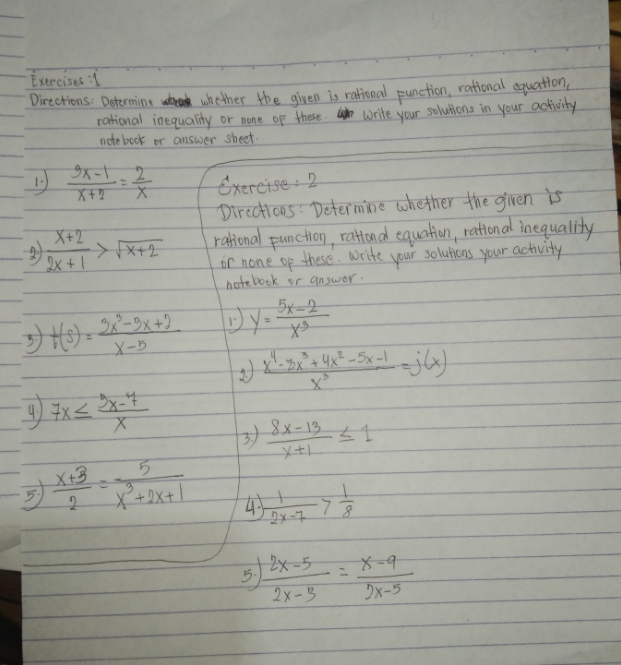 Exercises :1
Directions: Determine whether the given is rational function, rational equation,
rational inequality or none of these. Write your solutions in your activity
notebook or answer sheet.
1.) 9x-1/x+2 = 2/x
2) x+2/2x+1 > √x+2
3) f(s) = 3x³-3x+2/x-5
4) 7x ≤ 2x-7/x
5.) x+3/2 = 5/x³+2x+1
Exercise: 2
Directions: Determine whether the given is
rational function, rational equation, rational inequality
or none of these. Write your solutions your activity
notebook or answer.
1.) y = 5x-2/x³
2) x⁴-3x³+4x²-5x-1/x³ = j(x)
3.) 8x-13/x+1 ≤ 1
4.) 1/2x-7 > 1/8
5.) 2x-5/2x-3 = x-9/2x-5